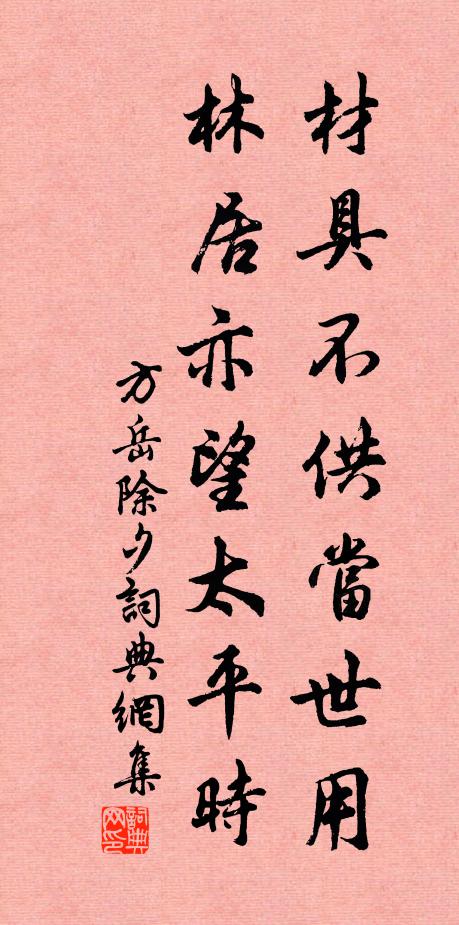 材具不供當世用
林居亦望太平時
方岳除夕詞典網集
詞典網印